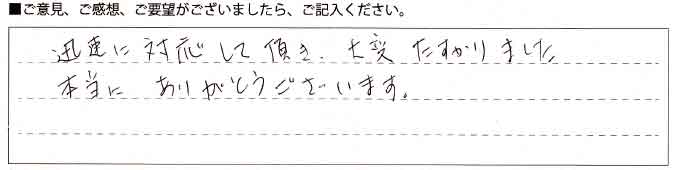 ■ご意見、ご感想、ご要望がございましたら、ご記入ください。
迅速に対応して頂き、大変たすかりました
本当に ありがとうございます。